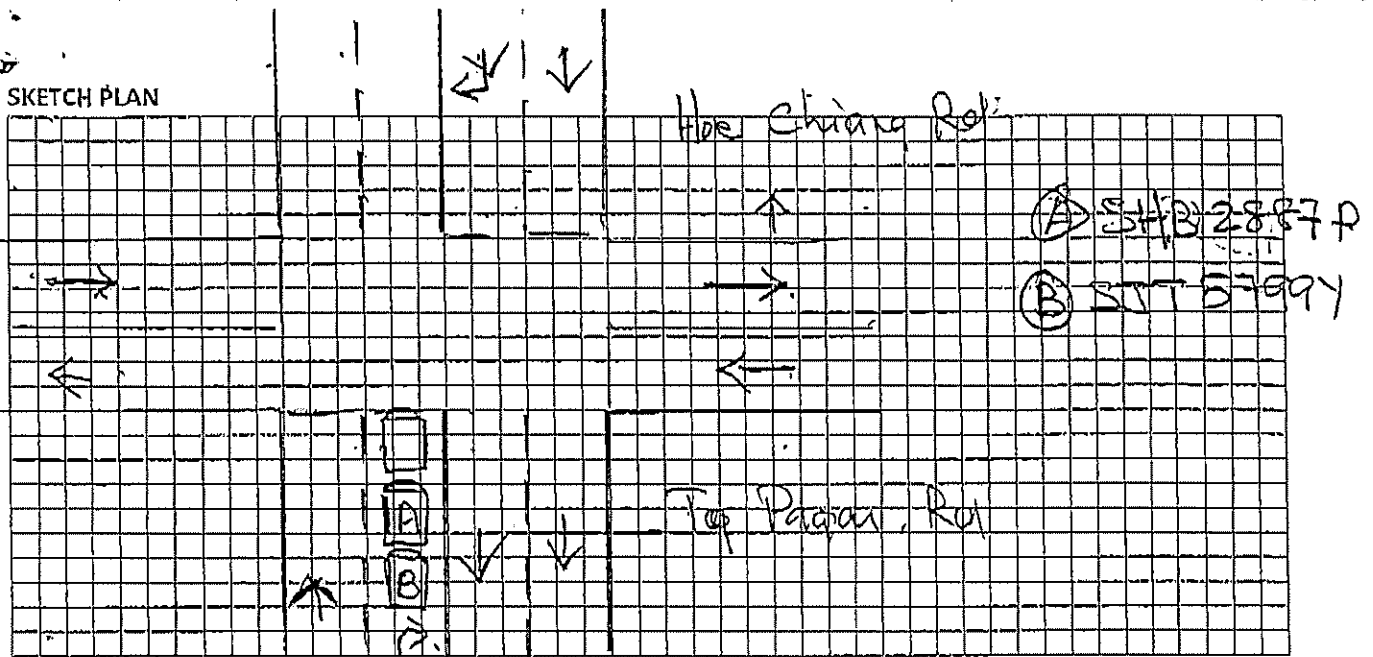 SKETCH PLAN
Hoe Chiang Rd.
Ⓐ SHB 2887 P
Ⓑ SJT 5799Y
A
Pagar. Rd
B